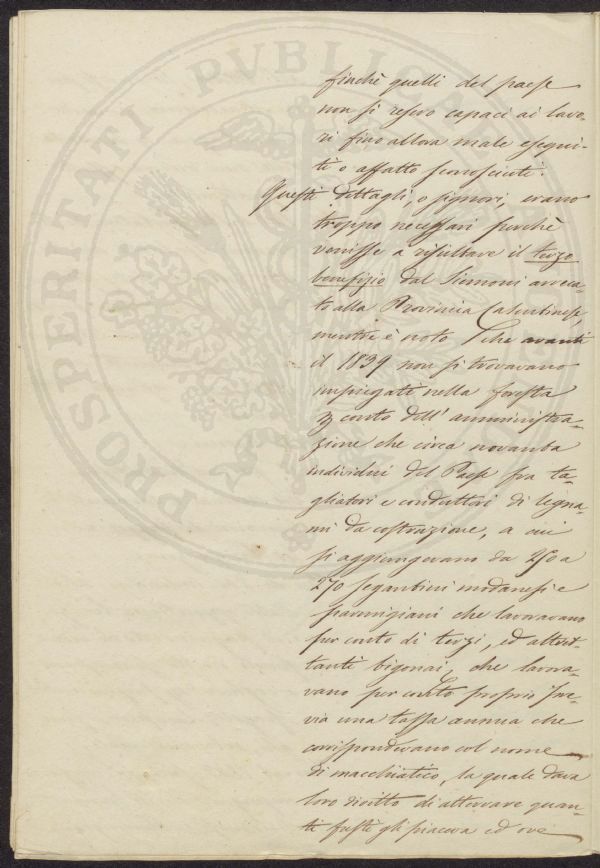 finchè quelli del paese
non si resero capaci ai lavo-
ri fino allora male esegui-
ti o affatto sconosciuti.
Questi dettagli, o signori, erano
troppo necessari perchè
venisse a risultare il terzo
benefizio dal Simoni arreca-
to alla Provincia Casentinese,
mentre è noto che avanti
il 1839 non si trovavano
impiegati nella foresta
conto dell'amministra-
zione che circa novanta
individui del Paese fra ta-
gliatori e conduttori di legna-
mi da costruzione, a cui
si aggiungevano da 250 a
270 segantini modanesi e
parmigiani che lavoravano
per conto di terzi, ed altret-
tanti bigonai, che lavora-
vano per conto proprio pre-
via una tassa annua che
corrispondevano col nome
di macchiatico, la quale dava
loro diritto di atterrare quan-
ti fusti gli piaceva ed ove
PROSPERITATI PVBLICAE